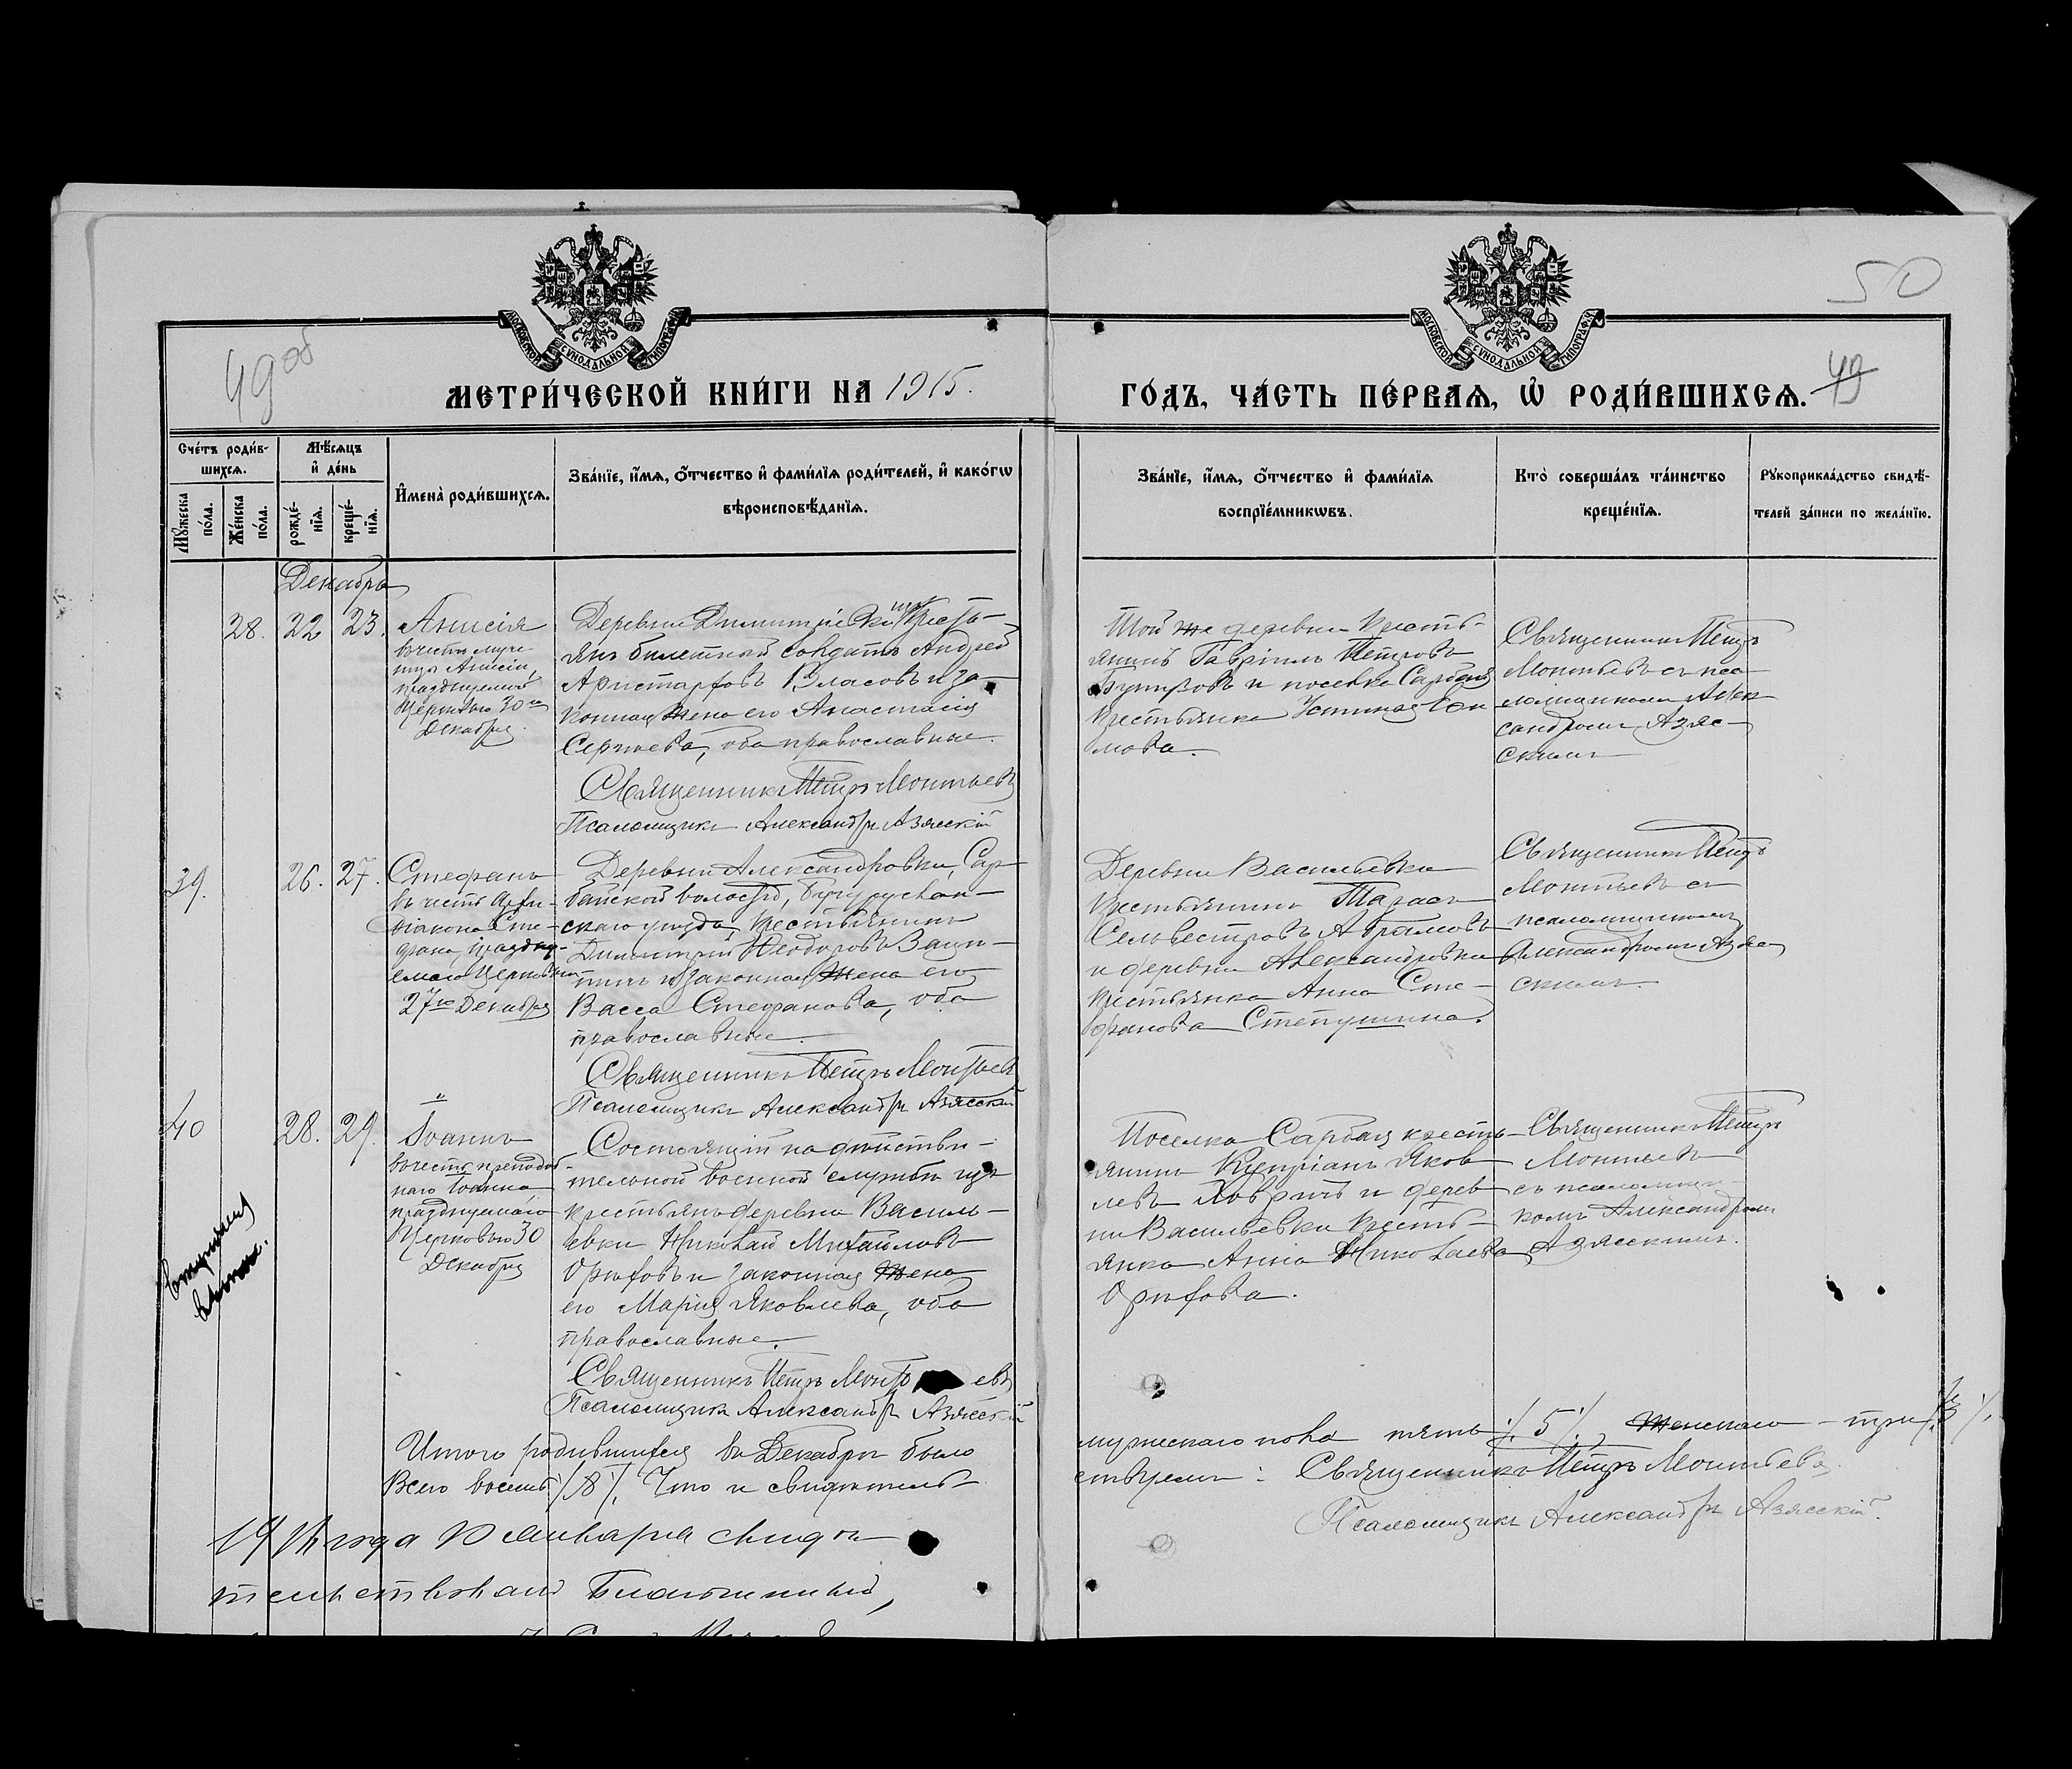 49 об
50
МОСКОВСКОЙ СУНОДАЛЬНОЙ ТИПОГРАФІИ
МОСКОВСКОЙ СУНОДАЛЬНОЙ ТИПОГРАФІИ
МЕТРИ́ЧЕСКОЙ КНИ́ГИ НА 1915.
ГО́ДЪ, ЧА́СТЬ ПЕ́РВАѦ, Ѡ҆ РОДИ́ВШИХСѦ. 49
Сче́тъ роди́в-
шихсѧ.
Мꙋ́жеска
по́ла.
Же́нска
по́ла.
Мѣ́сѧцъ
и҆ де́нь
рожде́-
нїѧ.
креще́-
нїѧ.
И҆мена̀ роди́вшихсѧ.
Зва́нїе, и҆́мѧ, ѻ҆́тчество и҆ фами́лїѧ роди́телей, и҆ како́гѡ
вѣроисповѣ́данїѧ.
Зва́нїе, и҆́мѧ, ѻ҆́тчество и҆ фами́лїѧ
воспрїе́мникѡвъ.
Кто̀ соверша́лъ та́инство
креще́нїѧ.
Рꙋкоприкла́дство свидѣ́-
телей за́писи по жела́нїю.
Декабрь
28. 22 23.
Анисія
въ честь муче
ницы Анисіи,
празднуемой
Церковью 30го
Декабря.
Деревни Димитріевки изъ кресть-
янъ билетный солдатъ Андрей
Аристарховъ Власовъ и за-
конная жена его Анастасія
Сергѣева, оба православные.
Священникъ Петръ Монтьевъ
Псаломщикъ Александръ Азясскій
Той же деревни кресть-
янинъ Гавріилъ Петровъ
и поселка Сарбая
крестьянка
мова.
Священникъ Петръ
Монтьевъ съ пса-
ломщикомъ Алек-
сандромъ Азяс-
скимъ
39. 26. 27.
Стефанъ
въ честь Архи-
діакона Сте-
фана, праздну-
емаго Церковью
27го Декабря
Деревни Александровки, Сар-
байской волости, Бугуруслан-
скаго уѣзда, крестьянинъ
Димитрій Ѳеодоровъ
и законная жена его
Васса Стефанова, оба
православные.
Священникъ Петръ Монтьевъ
Псаломщикъ Александръ Азясскій
Деревни Васильевки
крестьянинъ Тарасъ
Сельвестровъ Абрамовъ
и деревни Александровки
крестьянка Анна Сте-
фанова Степушина.
Священникъ Петръ
Монтьевъ съ
псаломщикомъ
Александромъ Азяс-
скимъ.
40 28. 29.
Іоаннъ
въ честь преподоб-
наго Іоанна
празднуемаго
Церковью 30
Декабря
Состоящій на дѣйстви-
тельной военной службѣ изъ
крестьянъ деревни Василь-
евки Николай Михайловъ
Орѣховъ и законная жена
его Марія Яковлева, оба
православные.
Священникъ Петръ Монть евъ
Псаломщикъ Александръ Азясскій
Поселка Сарбая кресть-
янинъ Купріанъ Яков-
левъ и дерев-
ни Васильевки кресть-
янка Анна Николаева
Орѣхова.
Священникъ Петръ
Монтьевъ
съ псаломщи-
комъ Александромъ
Азясскимъ.
Итого родившихся въ Декабрѣ было
мужескаго пола пять /. 5 /., женскаго – три /. 3 /.
Всего восемь /. 8 /. Что и свидѣтель-
ствуемъ: Священникъ Петръ Монтьевъ
Псаломщикъ Александръ Азясскій.
года января свидѣ-
тельствовалъ Благочинный,